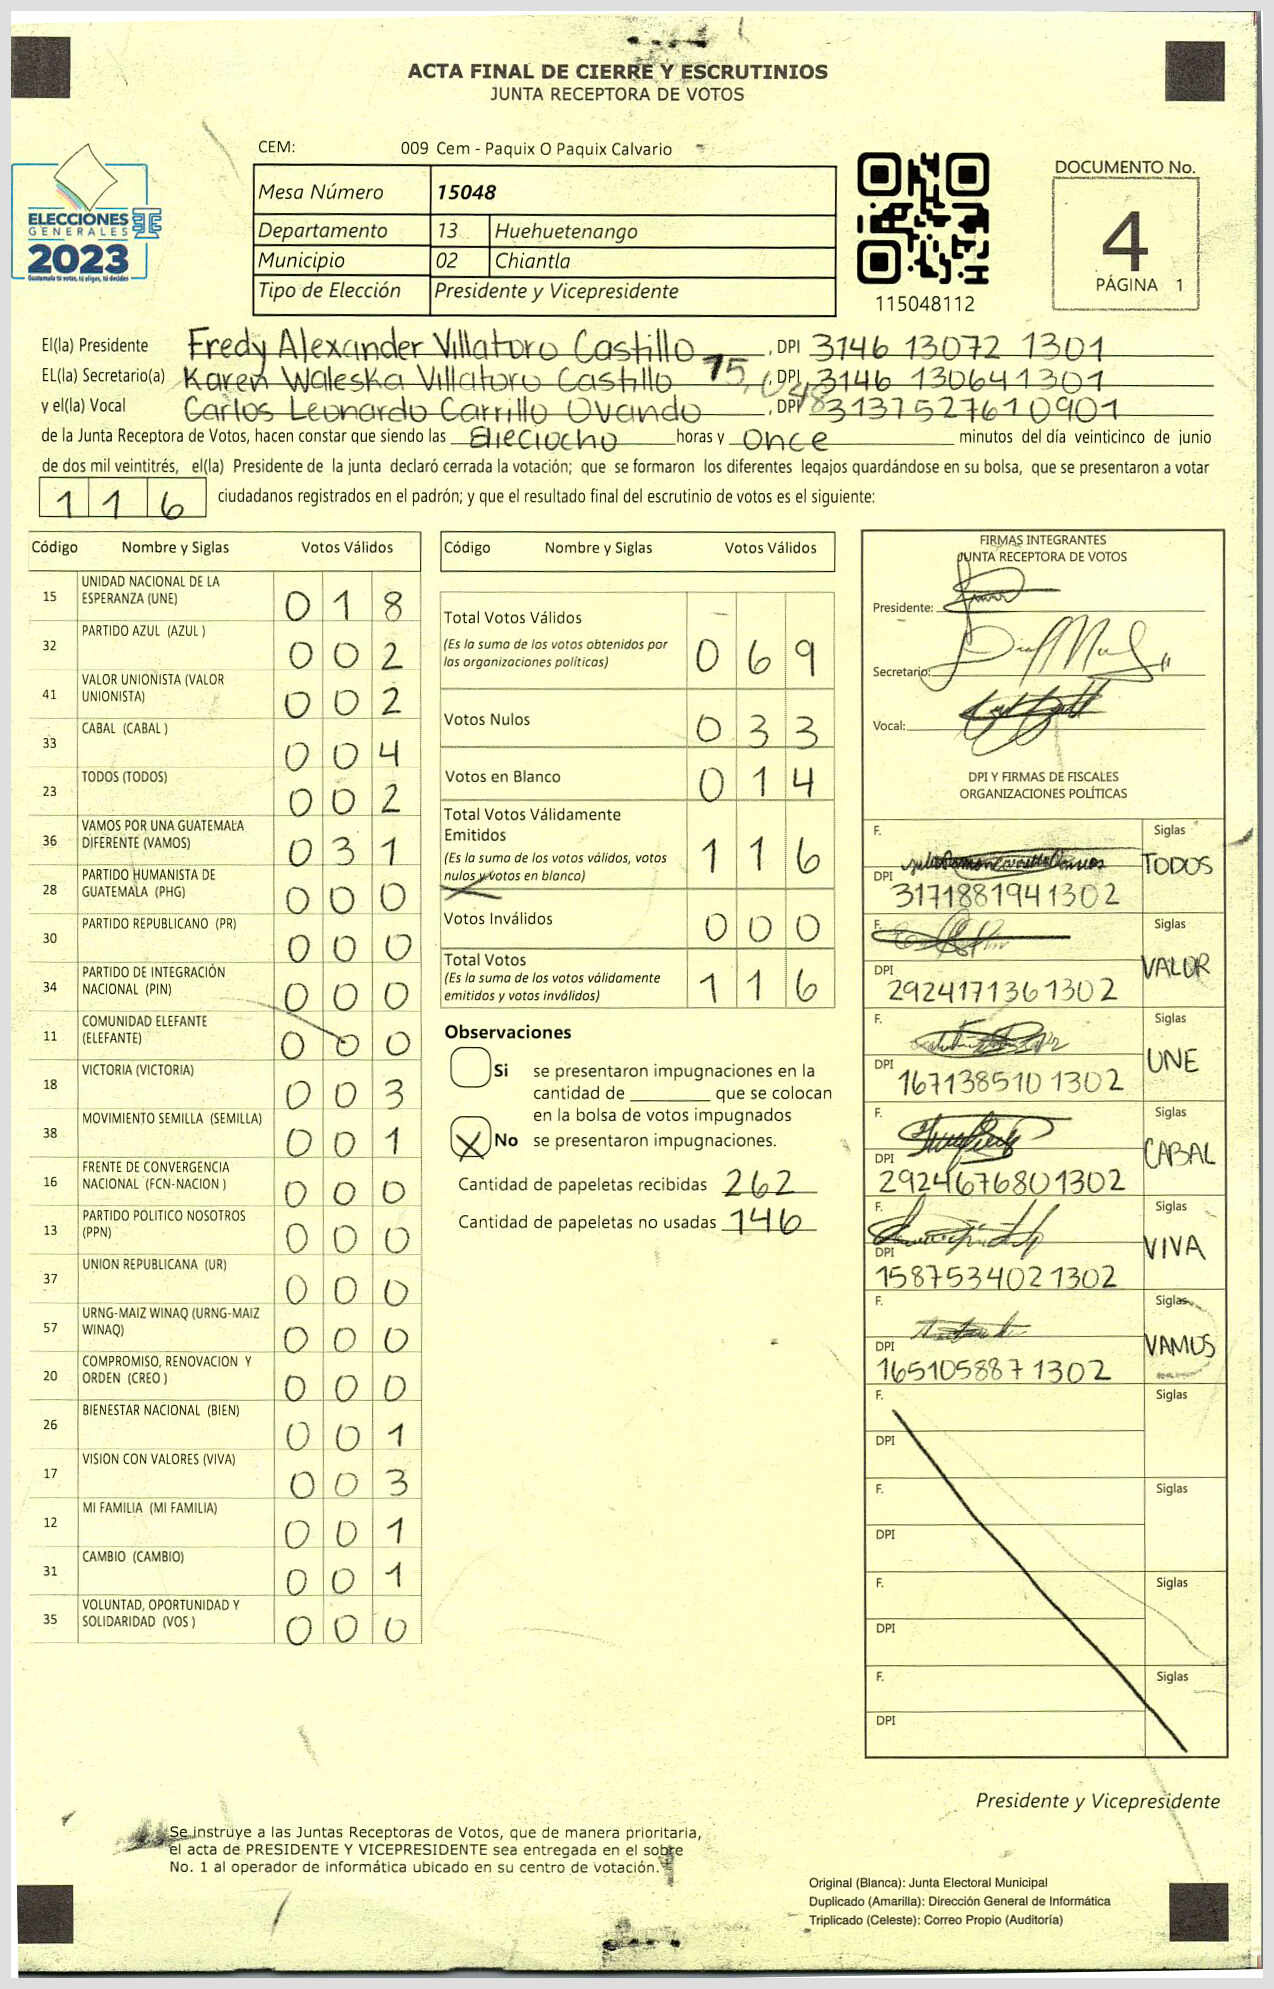 ACTA FINAL DE CIERRE Y ESCRUTINIOS
JUNTA RECEPTORA DE VOTOS
CEM: 009 Cem - Paquix O Paquix Calvario
ELECCIONES
GENERALES
2023
Guatemala tú votas, tú eliges, tú decides
Mesa Número 15048
Departamento 13 Huehuetenango
Municipio 02 Chiantla
Tipo de Elección Presidente y Vicepresidente
115048112
DOCUMENTO No.
4
PÁGINA 1
El(la) Presidente Fredy Alexander Villatoro Castillo, DPI 3146 13072 1301
EL(la) Secretario(a) Karen Waleska Villatoro Castillo 15,048, DPI 3146 130641301
y el(la) Vocal Carlos Leonardo Carrillo Ovando, DPI 3137527610901
de la Junta Receptora de Votos, hacen constar que siendo las Dieciocho horas y Once minutos del día veinticinco de junio
de dos mil veintitrés, el(la) Presidente de la junta declaró cerrada la votación; que se formaron los diferentes legajos guardándose en su bolsa, que se presentaron a votar
116 ciudadanos registrados en el padrón; y que el resultado final del escrutinio de votos es el siguiente:
Código Nombre y Siglas Votos Válidos
15 UNIDAD NACIONAL DE LA ESPERANZA (UNE) 018
32 PARTIDO AZUL (AZUL ) 002
41 VALOR UNIONISTA (VALOR UNIONISTA) 002
33 CABAL (CABAL ) 004
23 TODOS (TODOS) 002
36 VAMOS POR UNA GUATEMALA DIFERENTE (VAMOS) 031
28 PARTIDO HUMANISTA DE GUATEMALA (PHG) 000
30 PARTIDO REPUBLICANO (PR) 000
34 PARTIDO DE INTEGRACIÓN NACIONAL (PIN) 000
11 COMUNIDAD ELEFANTE (ELEFANTE) 000
18 VICTORIA (VICTORIA) 003
38 MOVIMIENTO SEMILLA (SEMILLA) 001
16 FRENTE DE CONVERGENCIA NACIONAL (FCN-NACION ) 000
13 PARTIDO POLITICO NOSOTROS (PPN) 000
37 UNION REPUBLICANA (UR) 000
57 URNG-MAIZ WINAQ (URNG-MAIZ WINAQ) 000
20 COMPROMISO, RENOVACION Y ORDEN (CREO ) 000
26 BIENESTAR NACIONAL (BIEN) 001
17 VISION CON VALORES (VIVA) 003
12 MI FAMILIA (MI FAMILIA) 001
31 CAMBIO (CAMBIO) 001
35 VOLUNTAD, OPORTUNIDAD Y SOLIDARIDAD (VOS ) 000
Código Nombre y Siglas Votos Válidos
Total Votos Válidos 069
(Es la suma de los votos obtenidos por
las organizaciones políticas)
Votos Nulos 033
Votos en Blanco 014
Total Votos Válidamente
Emitidos 116
(Es la suma de los votos válidos, votos
nulos y votos en blanco)
Votos Inválidos 000
Total Votos 116
(Es la suma de los votos válidamente
emitidos y votos inválidos)
Observaciones
Si se presentaron impugnaciones en la
cantidad de ________ que se colocan
en la bolsa de votos impugnados
X No se presentaron impugnaciones.
Cantidad de papeletas recibidas 262
Cantidad de papeletas no usadas 146
FIRMAS INTEGRANTES
JUNTA RECEPTORA DE VOTOS
Presidente:
Secretario:
Vocal:
DPI Y FIRMAS DE FISCALES
ORGANIZACIONES POLÍTICAS
F. Siglas
DPI 3171881941302 TODOS
F. Siglas
DPI 2924171361302 VALOR
F. Siglas
DPI 1671385101302 UNE
F. Siglas
DPI 2924676801302 CABAL
F. Siglas
DPI 1587534021302 VIVA
F. Siglas
DPI 1651058871302 VAMOS
F. Siglas
DPI
F. Siglas
DPI
F. Siglas
DPI
F. Siglas
DPI
Presidente y Vicepresidente
Se instruye a las Juntas Receptoras de Votos, que de manera prioritaria,
el acta de PRESIDENTE Y VICEPRESIDENTE sea entregada en el sobre
No. 1 al operador de informática ubicado en su centro de votación.
Original (Blanca): Junta Electoral Municipal
Duplicado (Amarilla): Dirección General de Informática
Triplicado (Celeste): Correo Propio (Auditoría)